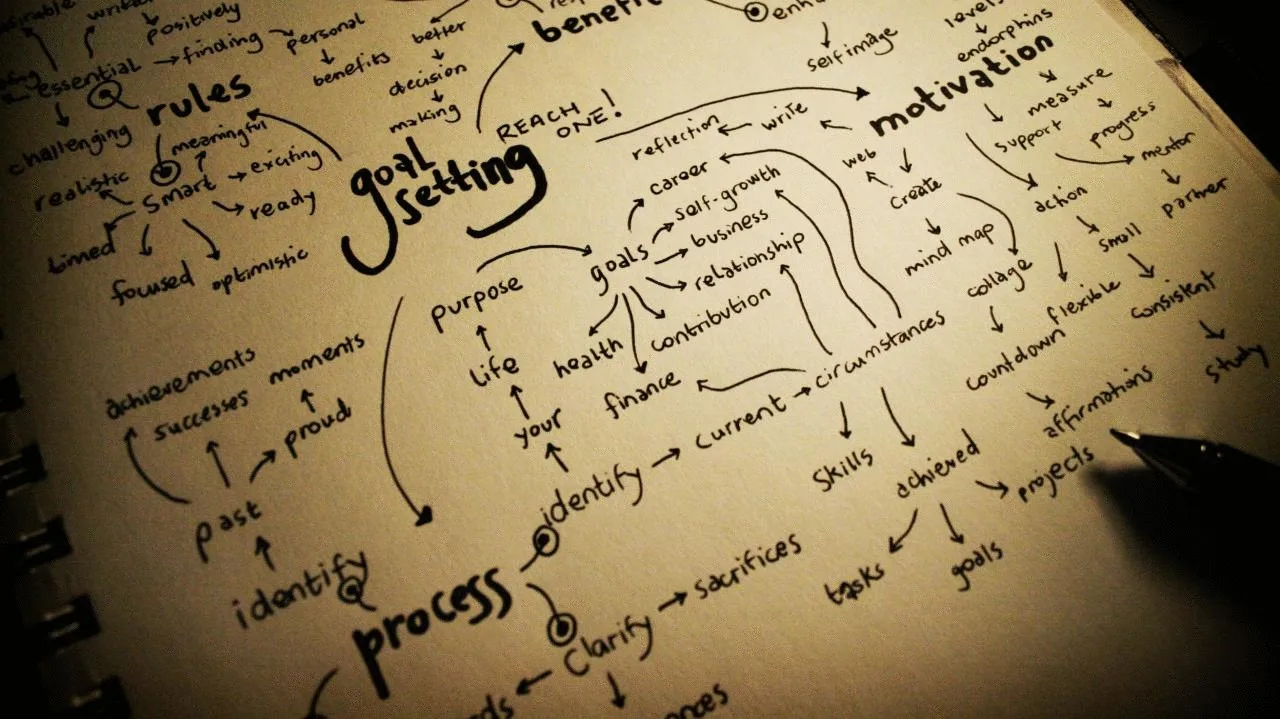 positively
essential
finding
personal
benefits
rules
challenging
meaningful
realistic
smart
exciting
ready
timed
focused
optimistic
better
decision
making
self image
levels
endorphins
motivation
measure
progress
support
mentor
partner
action
small
consistent
study
flexible
REACH
ONE!
goal
setting
write
reflection
web
create
mind map
collage
countdown
affirmations
purpose
life
your
identify
goals
career
self-growth
business
relationship
contribution
health
finance
current
circumstances
skills
achieved
projects
tasks
goals
achievements
successes
moments
proud
past
identify
process
clarify
sacrifices